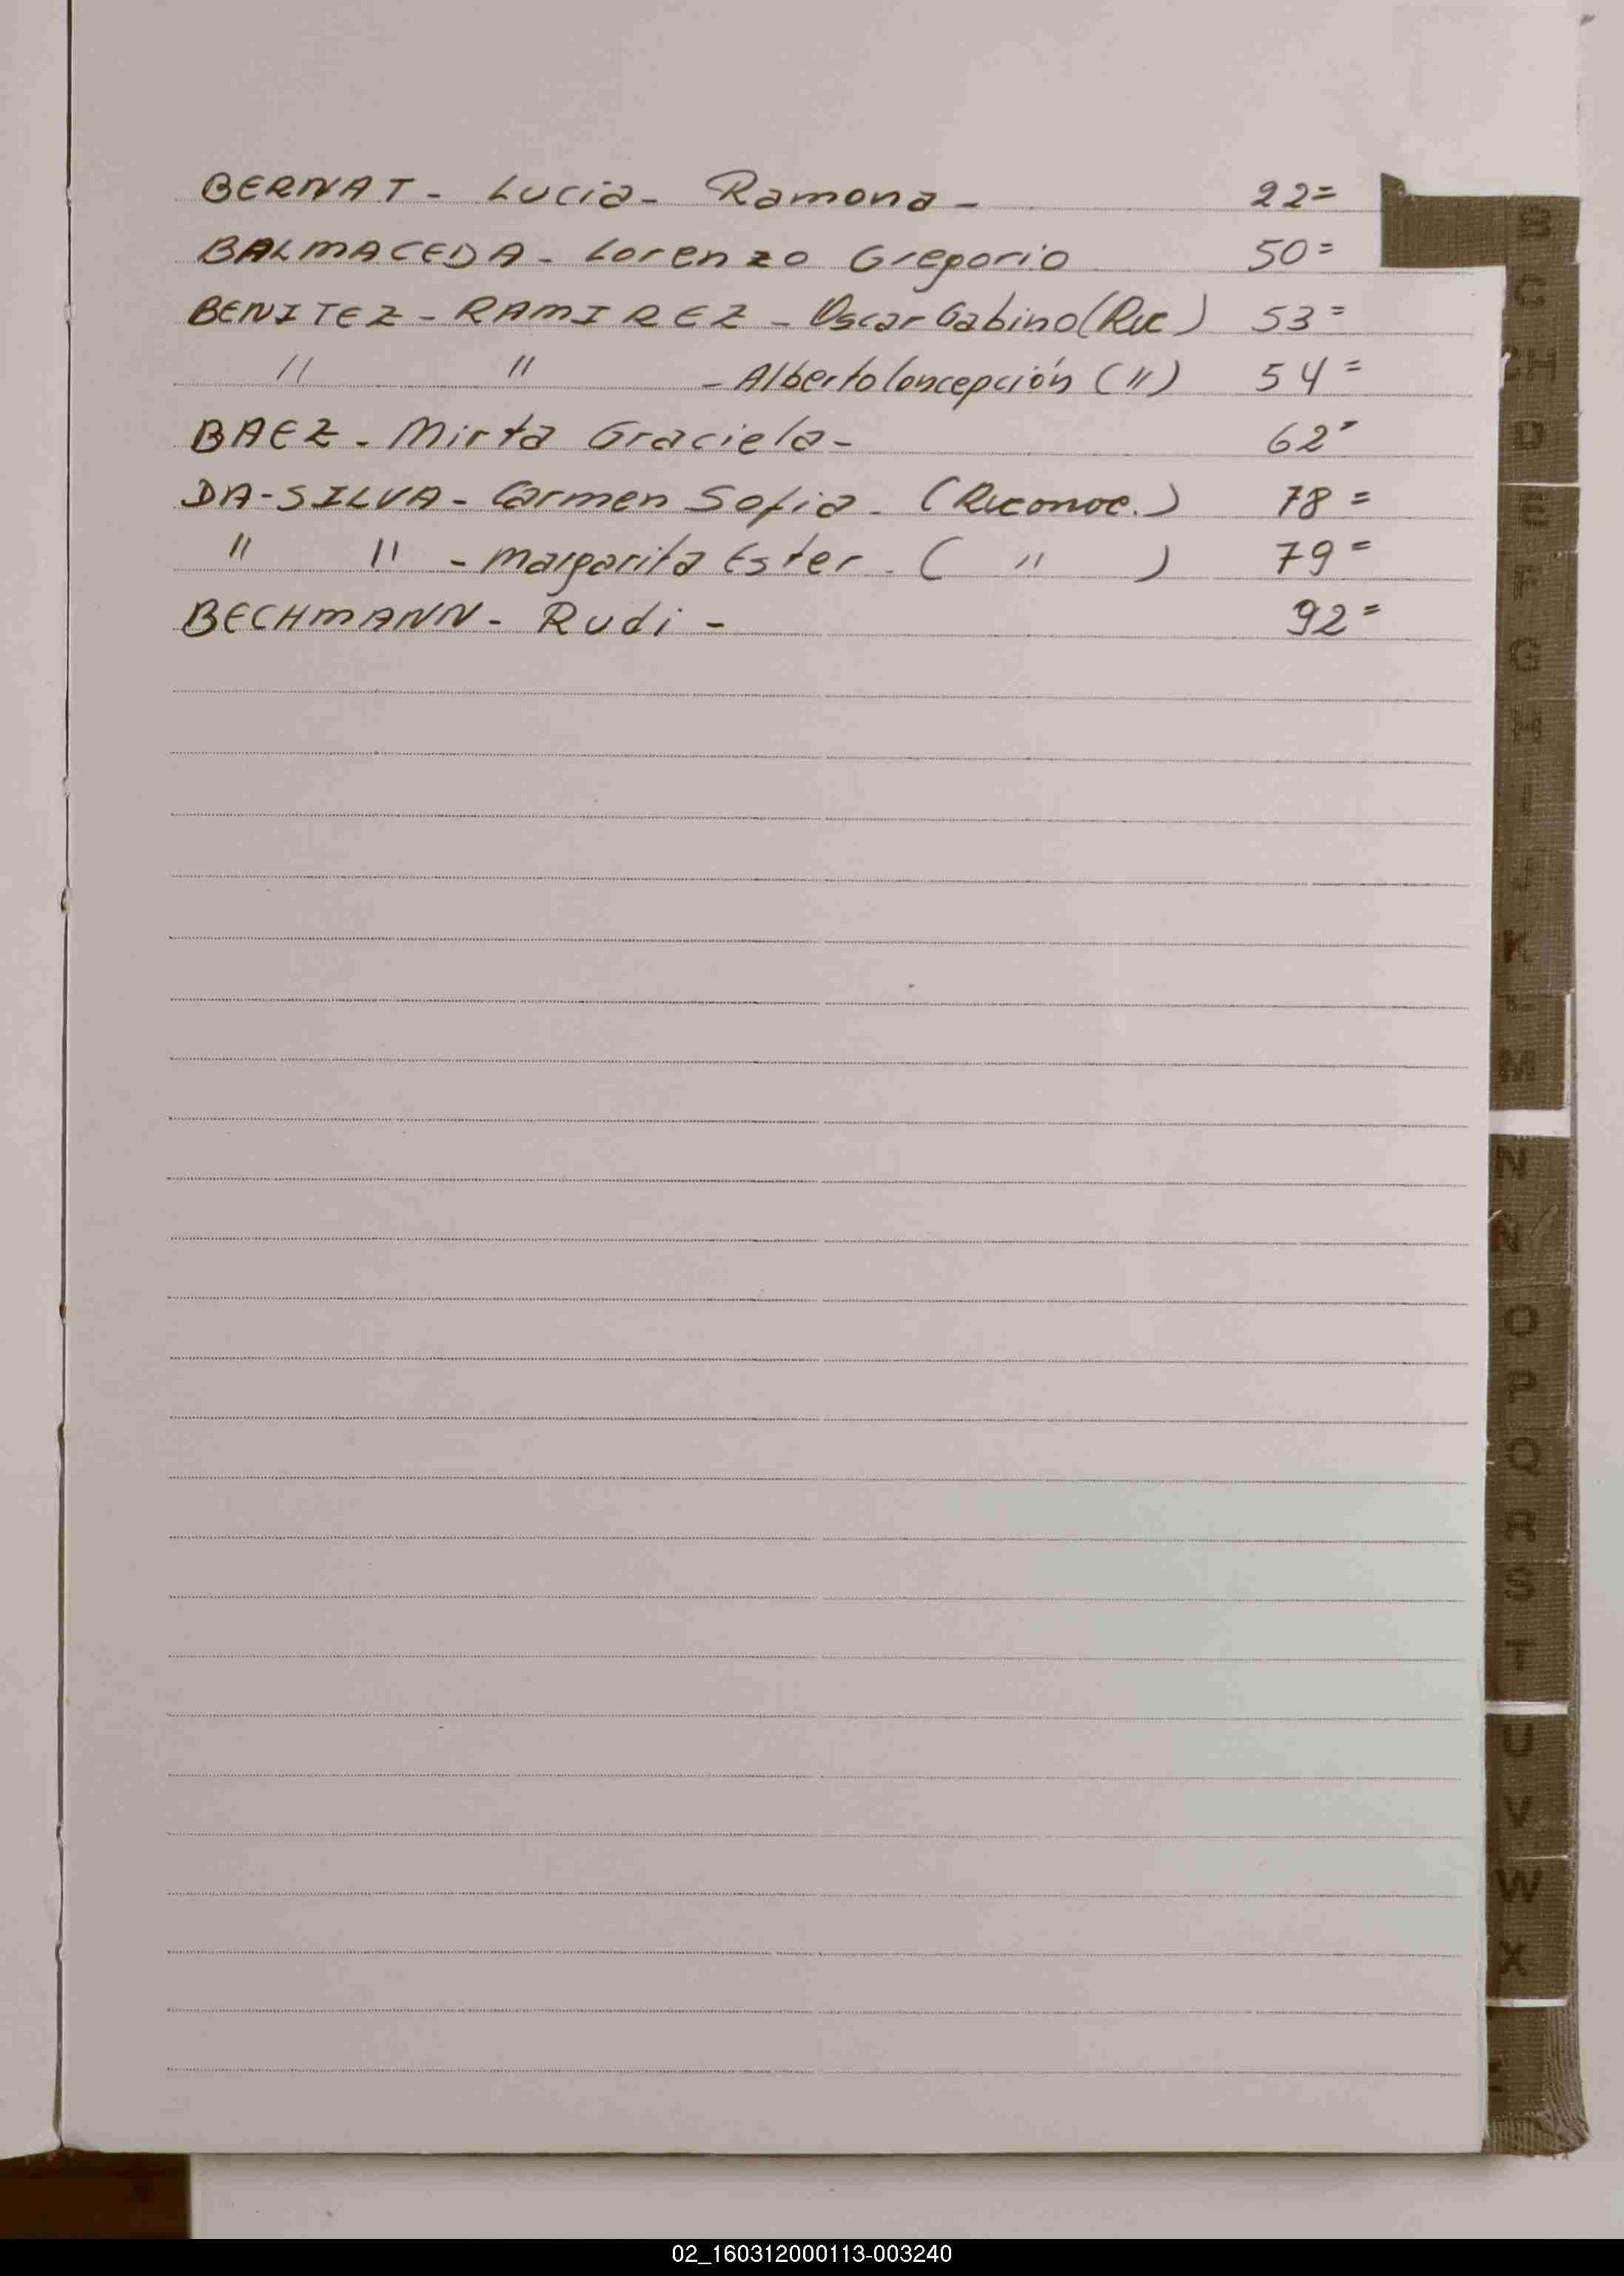 BERNAT - Lucia - Ramona - 22=
BALMACEDA - Lorenzo Gregorio 50=
BENITEZ - RAMIREZ - Oscar Gabino (Rec) 53=
" " - Alberto Concepción (") 54=
BAEZ - Mirta Graciela - 62=
DA-SILVA - Carmen Sofia - (Reconoc.) 78=
" " - Margarita Ester - ( " ) 79=
BECHMANN - Rudi - 92=
B
C
CH
D
E
F
G
H
I
J
K
L
M
N
Ñ
O
P
Q
R
S
T
U
V
W
X
02_160312000113-003240